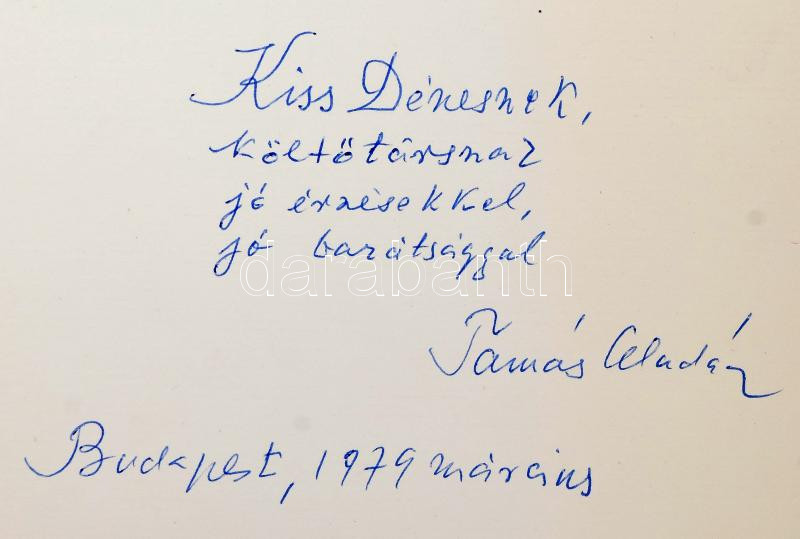 Kiss Dénesnek,
költőtársnak
jó érzésekkel,
jó barátsággal
darabanth
Tamás Aladár
Budapest, 1979 március